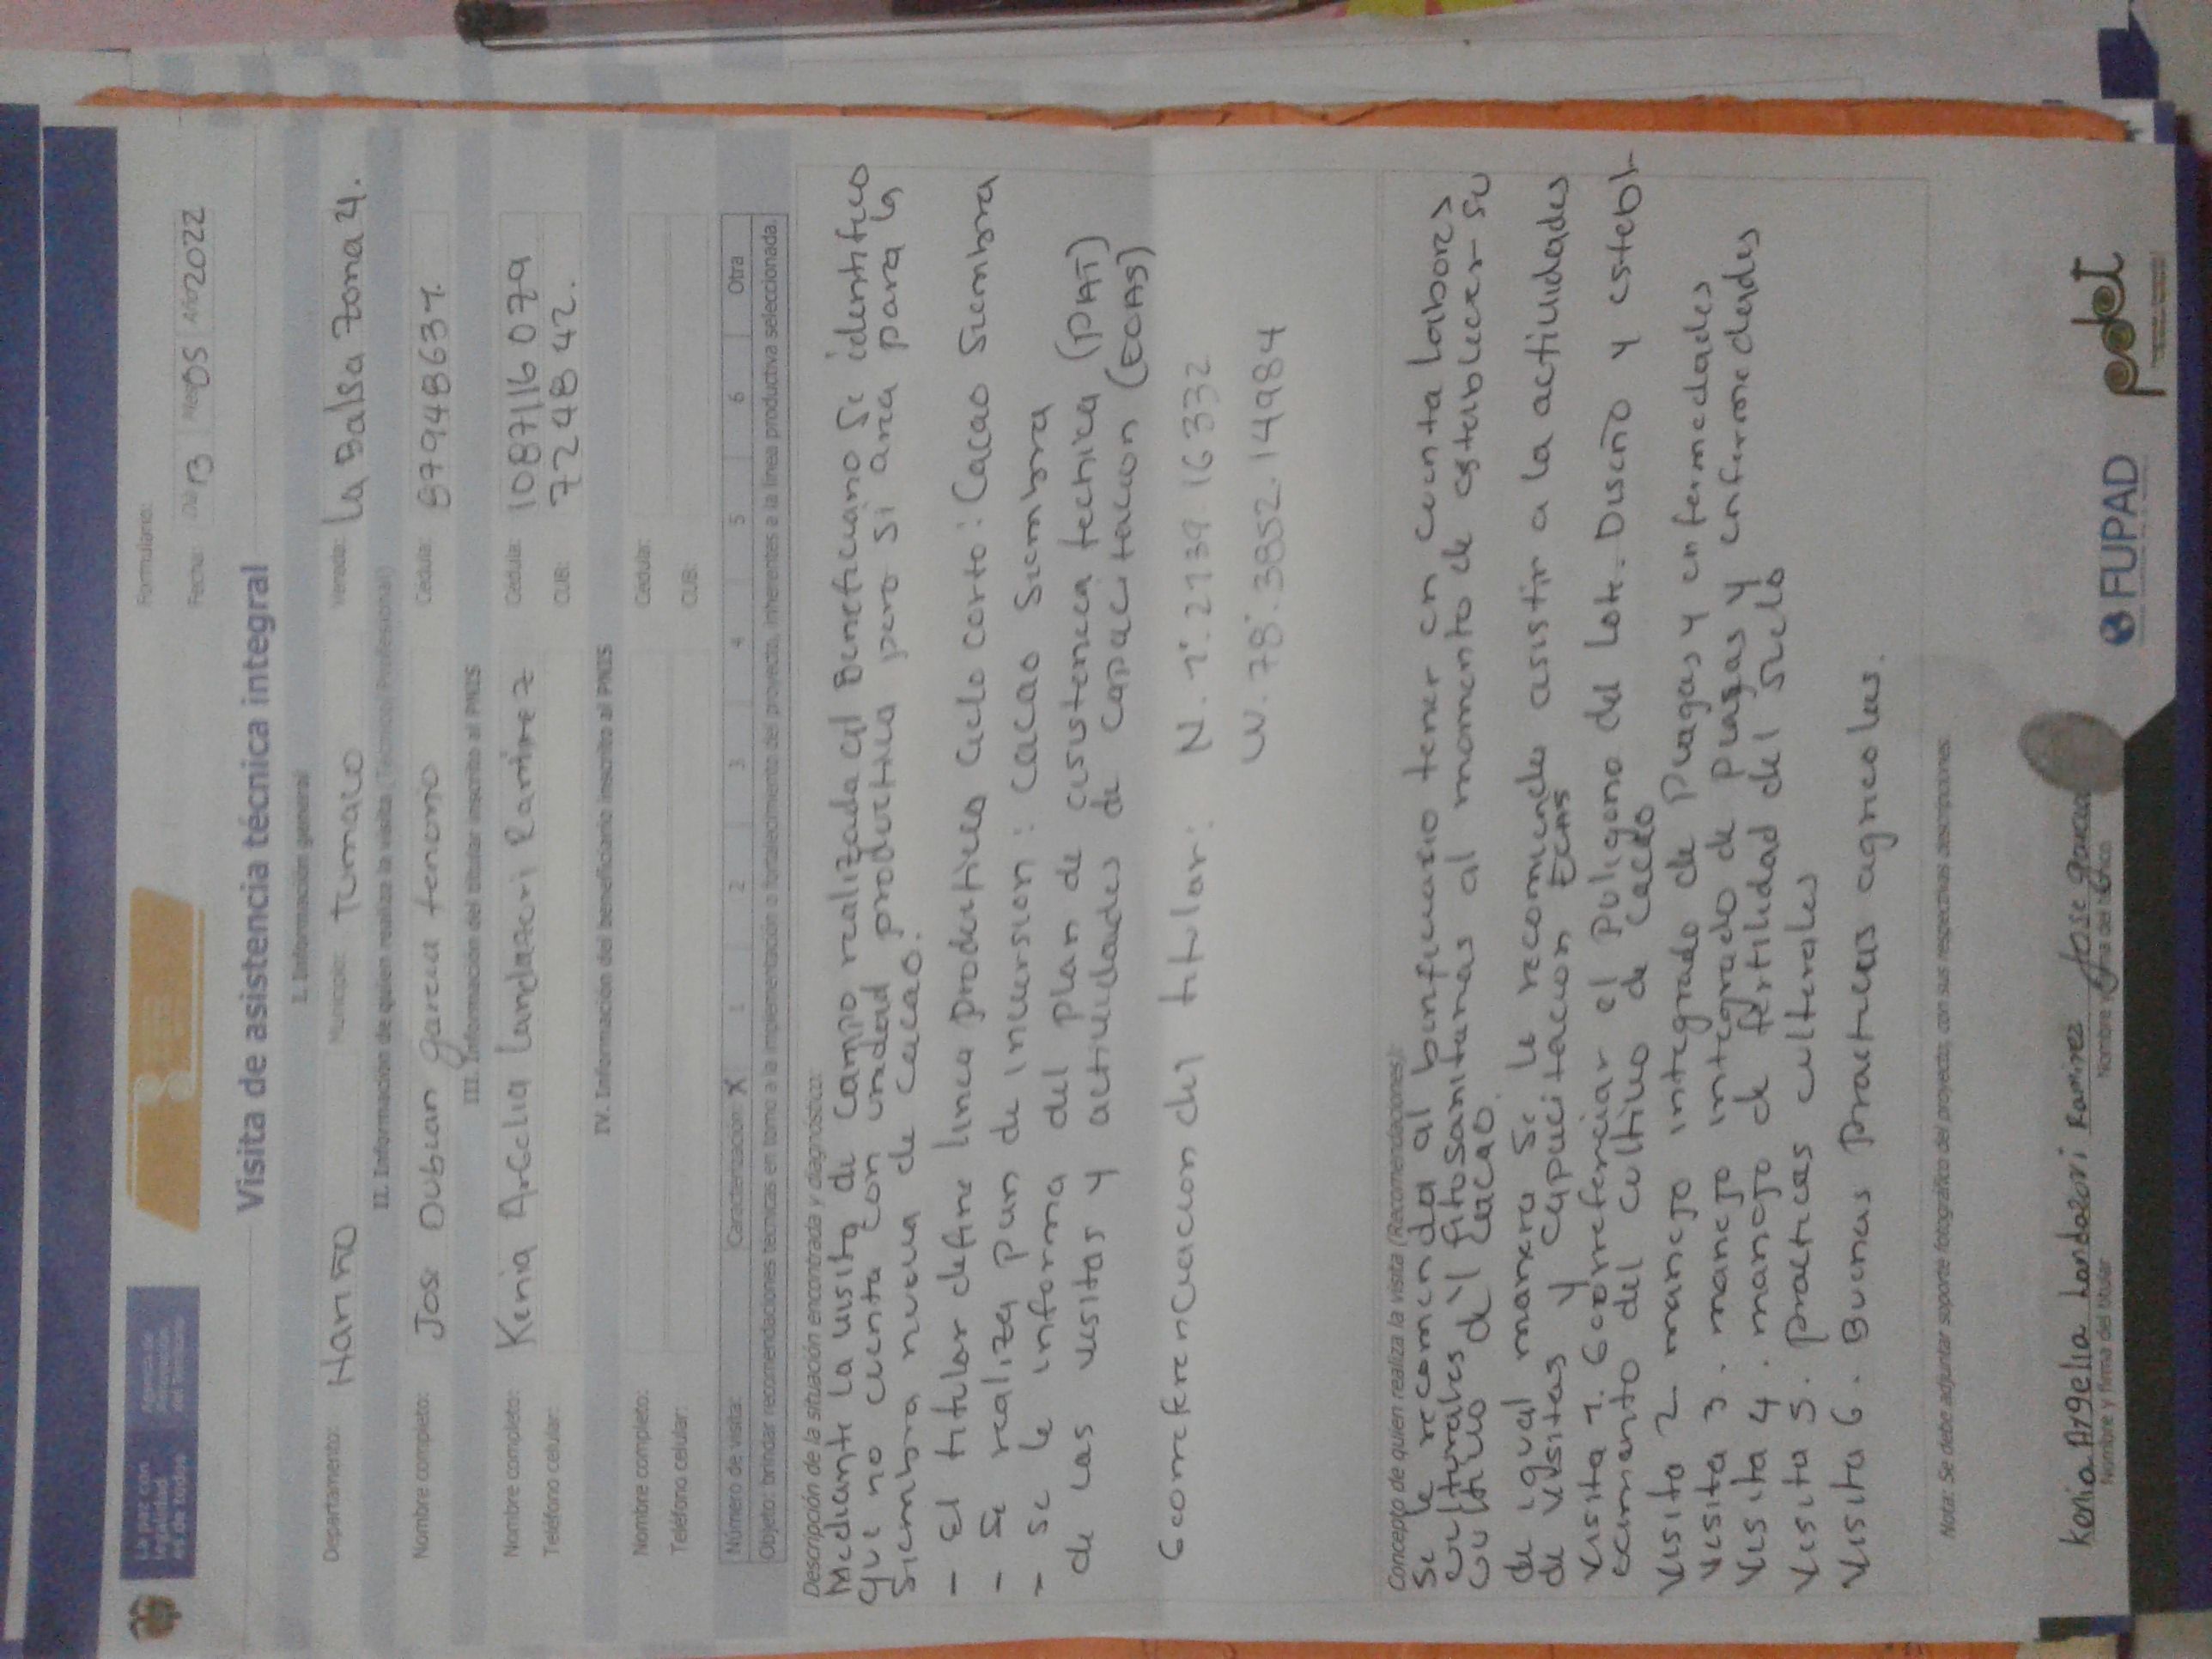 La paz con
legalidad
es de todos
Agencia de
Renovación
del Territorio
Formulario:
Fecha: Día 13 Mes 05 Año 2022
Visita de asistencia técnica integral
I. Información general
Departamento: Nariño Municipio: Tumaco Vereda: La Balsa Zona 4.
II. Información de quien realiza la visita (Técnico/ Profesional)
Nombre completo: Jose Dubian garcia tenorio Cédula: 87948631.
III. Información del titular inscrito al PNIS
Nombre completo: Kenia Argelia landazuri Ramirez Cédula: 1087116079
Teléfono celular: CUB: 724842.
IV. Información del beneficiario inscrito al PNIS
Nombre completo: Cédula:
Teléfono celular: CUB:
Número de visita: Caracterización X 1 2 3 4 5 6 Otra
Objeto: brindar recomendaciones técnicas en torno a la implementación o fortalecimiento del proyecto, inherentes a la línea productiva seleccionada.
Descripción de la situación encontrada y diagnóstico:
Mediante la visita de campo realizada al Beneficiario Se identifico
que no cuenta con unidad productiva pero si area para la
Siembra nueva de cacao.
- El titular define linea productiva ciclo corto: Cacao Siembra
- Se realiza plan de incersion: cacao Siembra
- se le informa del plan de asistencia tecnica (PAT)
de las visitas y actividades de capacitacion (ECAS)
Georreferenciacion del titular: N. 1°. 2739. 16332
W. 78°. 3852. 14984
Concepto de quien realiza la visita (Recomendaciones):
Se le recomienda al beneficiario tener en cuenta labores
culturales y fitosanitarias al momento de establecer su
cultivo de cacao.
de igual manera se le recomienda asistir a la actividades
de visitas y capacitacion ECAS
Visita 1. Georreferenciar el poligono del lote. Diseño y establ-
ecimiento del cultivo de cacao
Visita 2 manejo integrado de plagas y enfermedades
Visita 3. manejo integrado de plagas y enfermedades
Visita 4. manejo de fertilidad del suelo
Visita 5. practicas culturales
Visita 6. Buenas practicas agricolas.
Nota: Se debe adjuntar soporte fotográfico del proyecto, con sus respectivas descripciones.
Kenia Argelia Landazuri Ramirez Jose garcia
Nombre y firma del titular
FUPAD
pdet